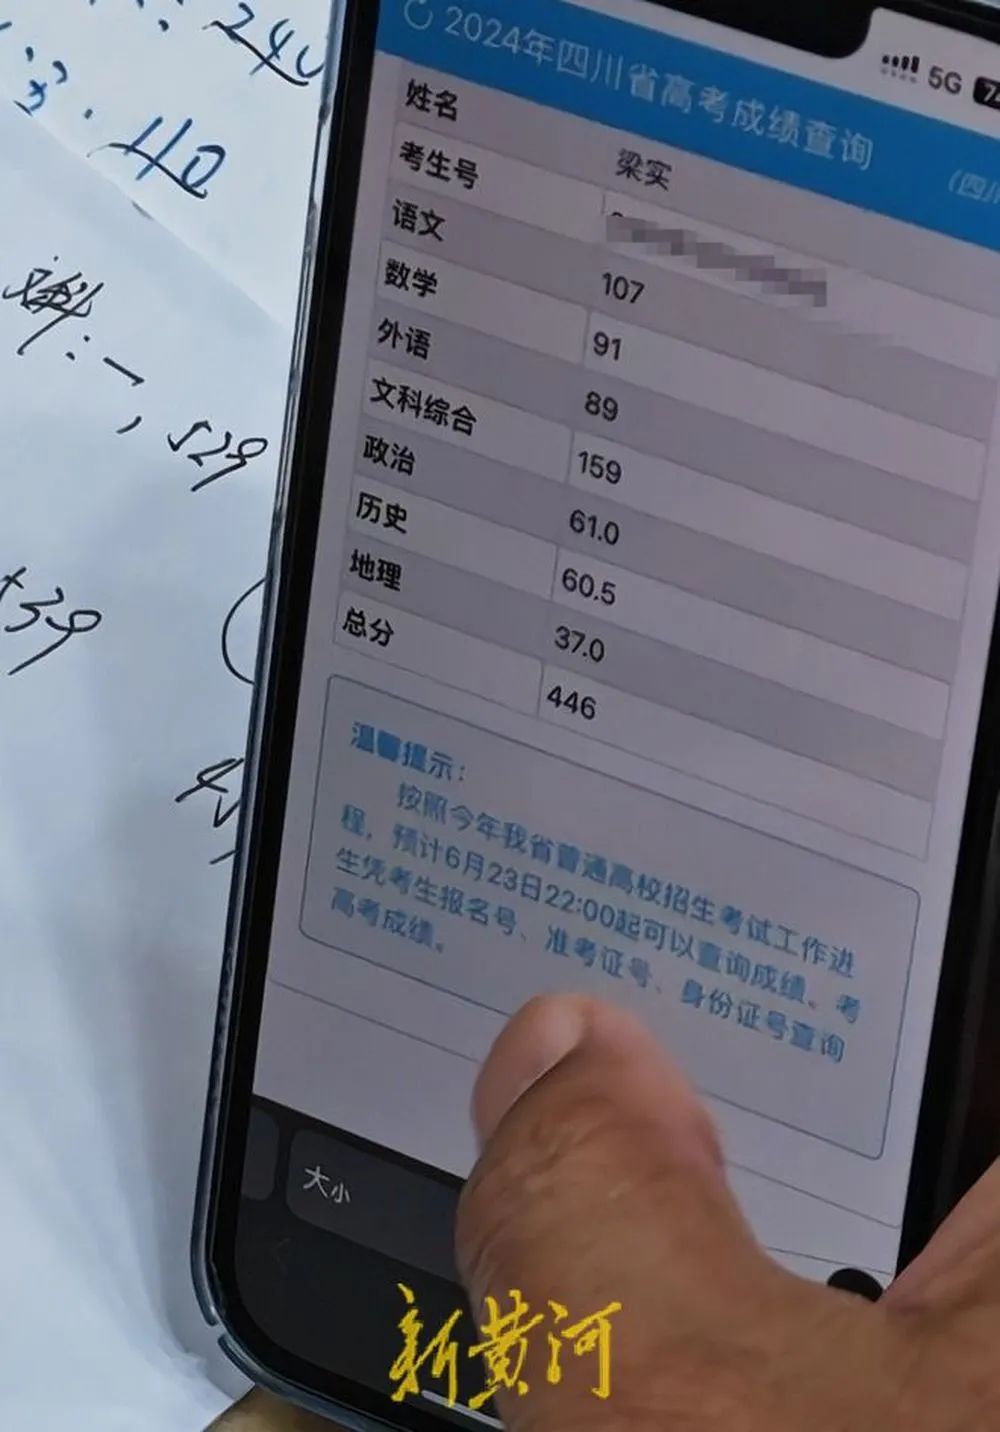 2024年四川省高考成绩查询
5G
(四川
姓名 梁实
考生号
语文 107
数学 91
外语 89
文科综合 159
政治 61.0
历史 60.5
地理 37.0
总分 446
温馨提示：
按照今年我省普通高校招生考试工作进
程，预计6月23日22:00起可以查询成绩。考
生凭考生报名号、准考证号、身份证号查询
高考成绩。
大小
240
110
529
+39
新黄河